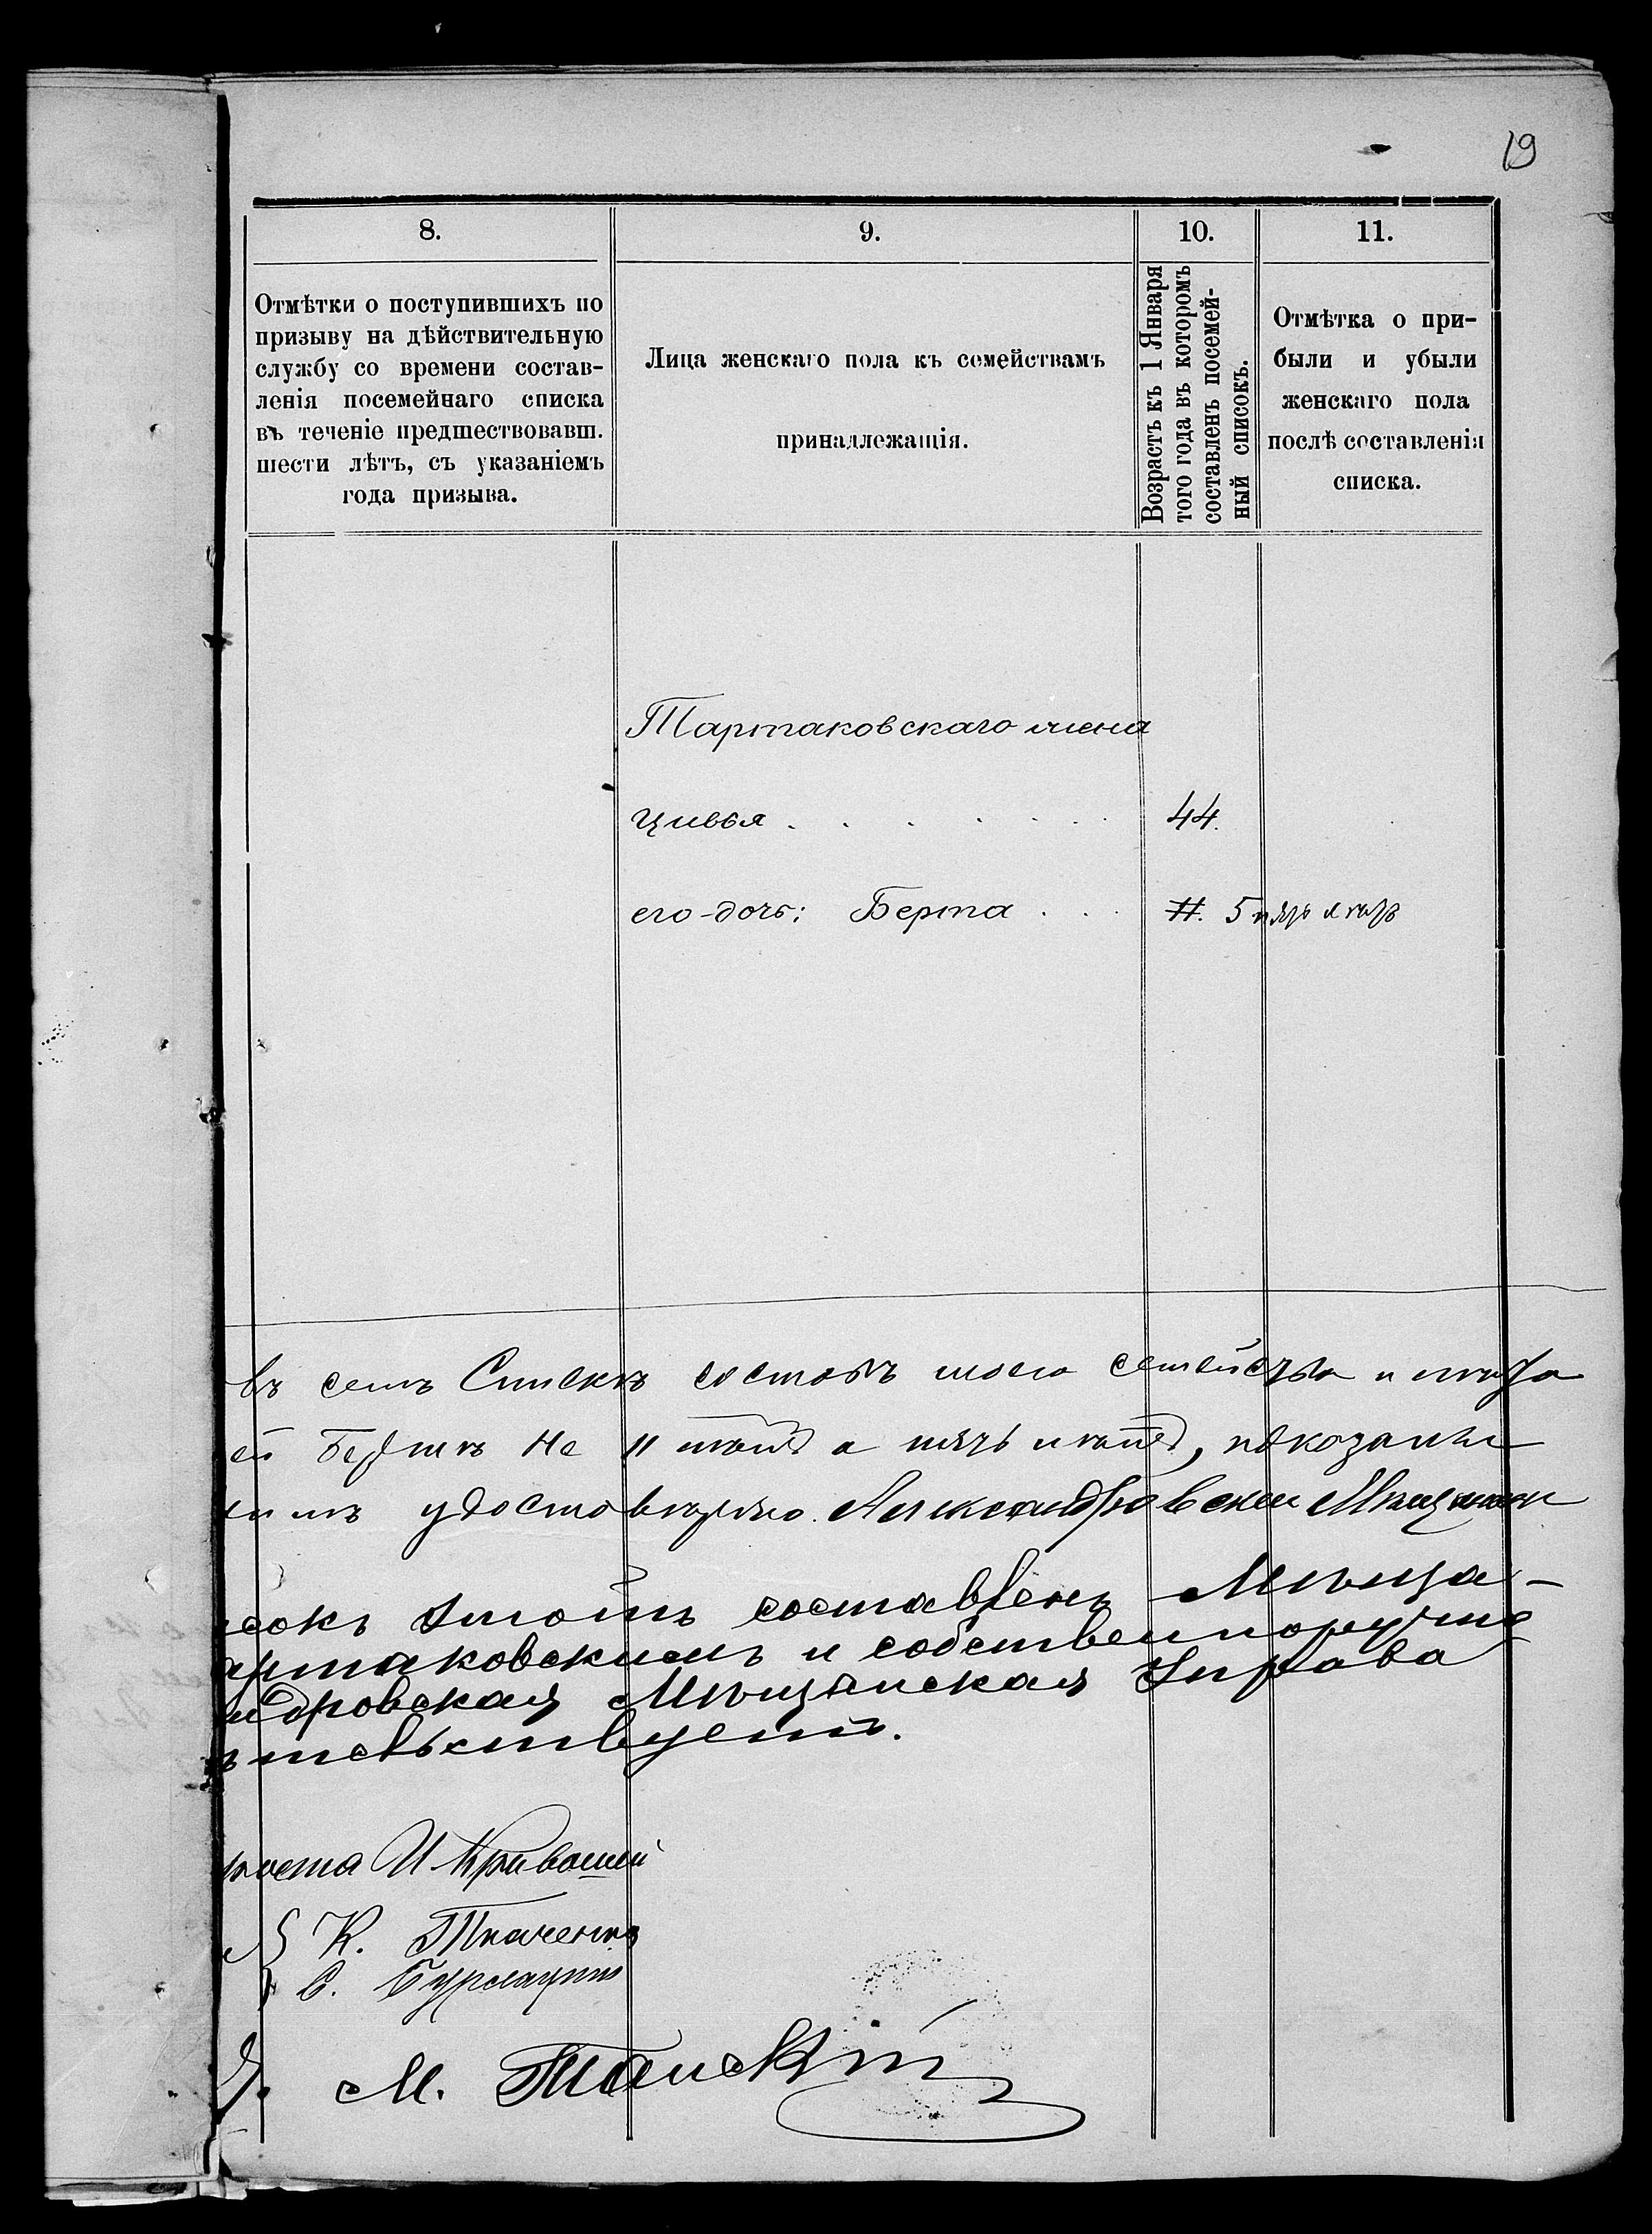 19
8.
9.
10.
11.
Отмѣтки о поступившихъ по
призыву на дѣйствительную
службу со времени состав-
ленія посемейнаго списка
въ теченіе предшествовавш.
шести лѣтъ, съ указаніемъ
года призыва.
Лица женскаго пола къ семействамъ
принадлежащія.
Возрастъ къ 1 Января
того года въ которомъ
составленъ посемей-
ный списокъ.
Отмѣтка о при-
были и убыли
женскаго пола
послѣ составленія
списка.
Тартаковскаго жена
Цивья . . . . . . 44.
его-дочь: Берта . . . 11. 5 пять лѣтъ
въ семъ Спискѣ составъ моего семейства и
ей Бертѣ не 11 лѣтъ а пять лѣтъ, показаніе
удостовѣряю. Александровскій Мѣщанин
исокъ этотъ составленъ Мѣща-
артаковскимъ и собственноручно
ндровская Мѣщанская Управа
тельствуетъ.
роста И Кривошей
К. Ткаченко
С.
М.